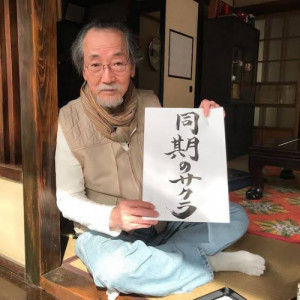 同期のサクラ